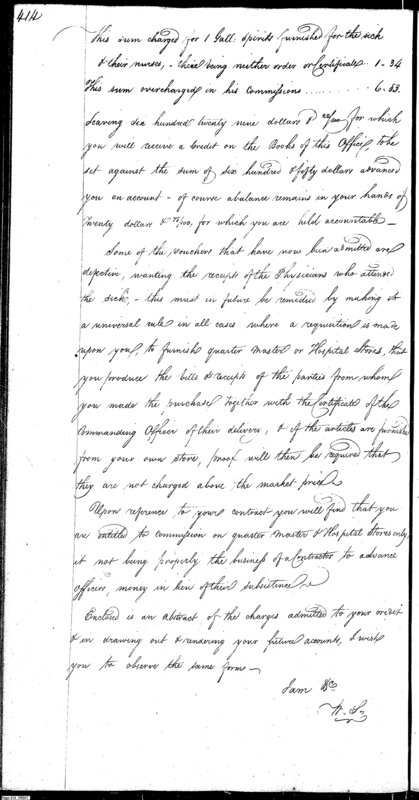 414
This Sum charged for 1 Gall: Spirits furnished for the sick
& their nurses, - their being neither order or Certificate.. 1-34
This sum overcharged in his Commissions .......... 6-53.
Leaving six hundred twenty nine dollars & 22/100 for which
you will receive a Credit on the Books of this Office, to be
set against the sum of six hundred & fifty dollars advanced
you on account - of course a balance remains in your hands of
Twenty dollars & 78/100, for which you are held accountable -
Some of the vouchers that have now been admitted are
defective, wanting the receipts of the Physicians who attended
the sick, - this must in future be remedied by making it
a universal rule in all cases where a requisition is made
upon you, to furnish quarter Master or Hospital Stores, that
you produce the bills & receipts of the parties from whom
you made the purchase together with the Certificate of the
Commanding Officer of their delivery, & if the articles are furnished
from your own Store, proof will then be required that
they are not charged above the market price
Upon reference to your contract you will find that you
are entitled to commission on quarter Master & Hospital Stores only,
it not being properly the business of a Contractor to advance
Officers, money in lieu of their subsistence
Enclosed is an abstract of the charges admitted to your credit
& in drawing out & rendering your future accounts, I wish
you to observe the same form -
I am &c
W. S.